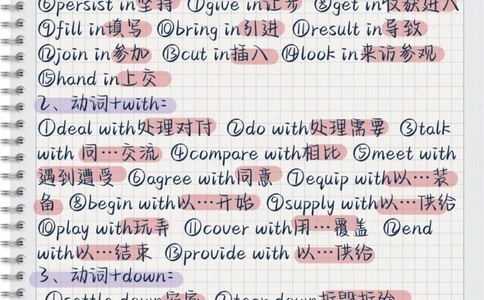 ⑥persist in坚持 ⑦give in让步 ⑧get in收获进入
⑨fill in填写 ⑩bring in引进 ⑪result in导致
⑫join in参加 ⑬cut in插入 ⑭look in来访参观
⑮hand in上交
2、动词+with:
①deal with处理对付 ②do with处理需要 ③talk
with 同…交流 ④compare with相比 ⑤meet with
遇到遭受 ⑥agree with同意 ⑦equip with以…装
备 ⑧begin with以…开始 ⑨supply with以…供给
⑩play with玩弄 ⑪cover with用…覆盖 ⑫end
with以…结束 ⑬provide with 以…供给
3、动词+down:
①settle down安家 ②tear down拆毁拆除